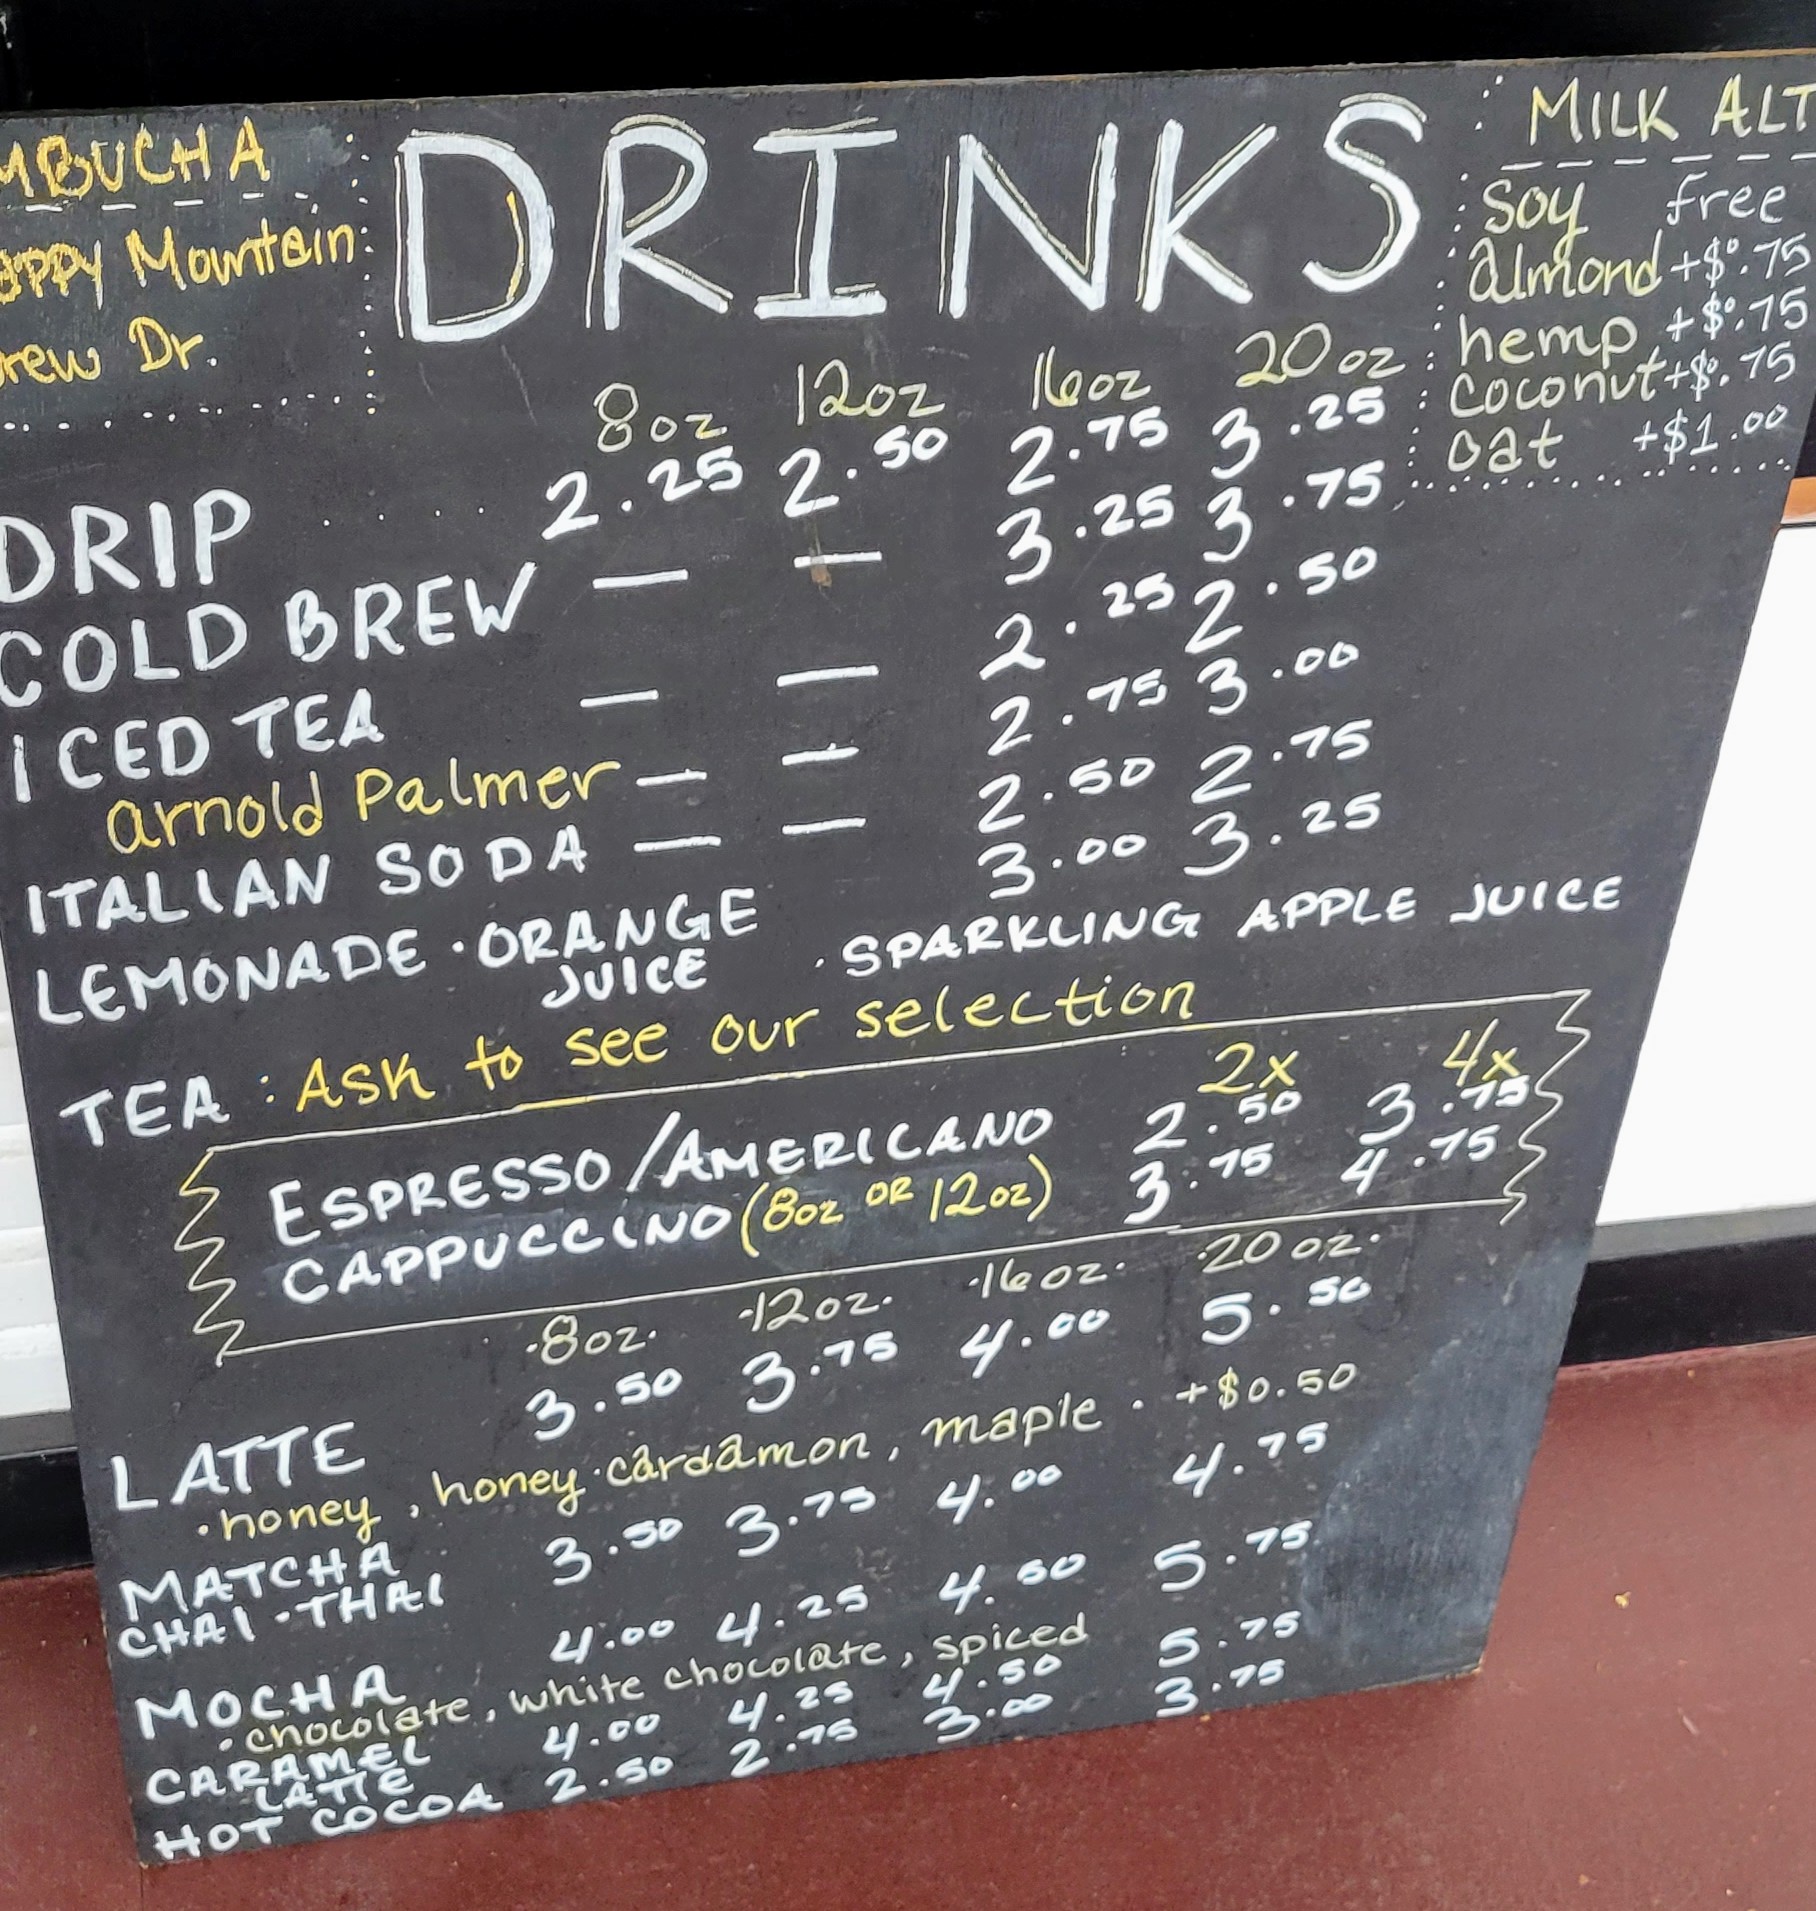 MBUCHA
appy Mountain
rew Dr.
DRINKS
MILK ALT
Soy free
almond +$0.75
hemp +$0.75
coconut +$0.75
oat +$1.00
8oz 12oz 16oz 20oz
DRIP .... 2.25 2.50 2.75 3.25
COLD BREW — — 3.25 3.75
ICED TEA — — 2.25 2.50
arnold Palmer — — 2.75 3.00
ITALIAN SODA — — 2.50 2.75
LEMONADE · ORANGE JUICE · SPARKLING APPLE JUICE 3.00 3.25
TEA: Ask to see our selection
2x 4x
ESPRESSO/AMERICANO 2.50 3.75
CAPPUCCINO (8oz OR 12oz) 3.75 4.75
·8oz· ·12oz· ·16oz· ·20oz·
LATTE 3.50 3.75 4.00 5.50
·honey, honey·cardamon, maple · +$0.50
MATCHA
CHAI·THAI 3.50 3.75 4.00 4.75
MOCHA 4.00 4.25 4.50 5.75
·chocolate, white chocolate, spiced
CARAMEL LATTE 4.00 4.25 4.50 5.75
HOT COCOA 2.50 2.75 3.00 3.75